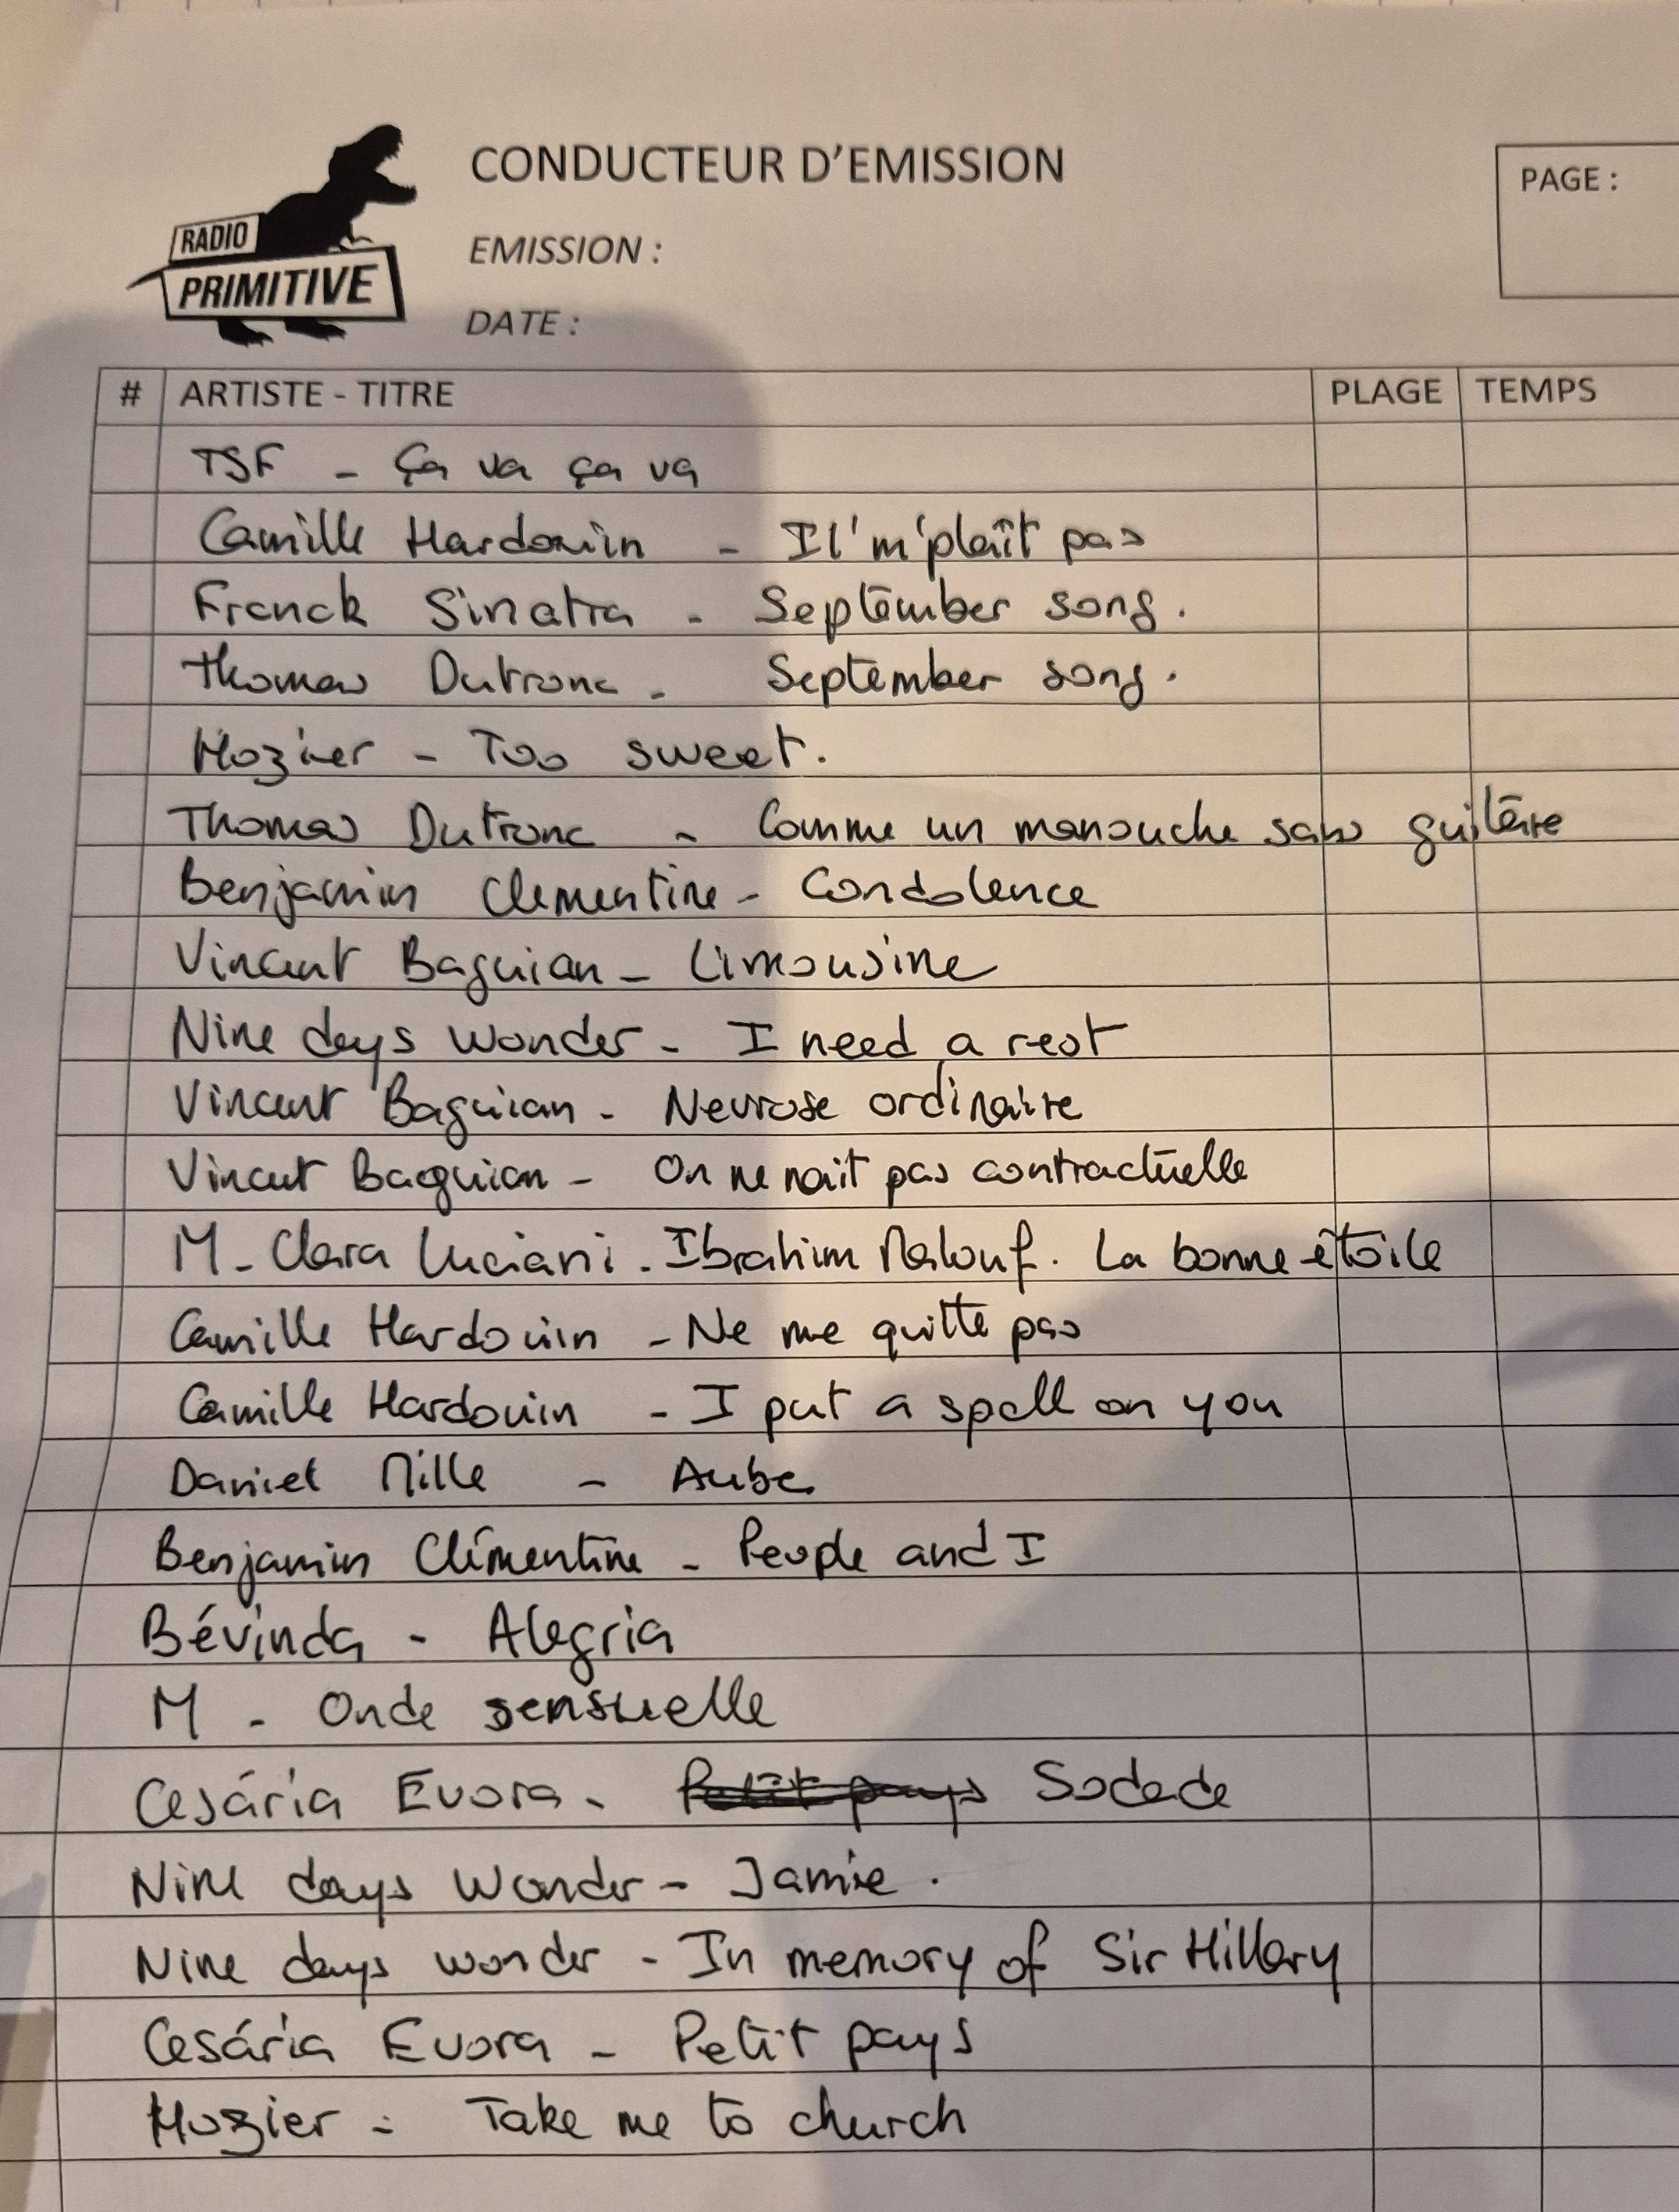 CONDUCTEUR D'EMISSION
PAGE :
RADIO
PRIMITIVE
EMISSION :
DATE :
# ARTISTE - TITRE PLAGE TEMPS
TSF - Ça va ça va
Camille Hardouin - Il'm'plaît pas
Franck Sinatra - September song.
Thomas Dutronc - September song.
Hozier - Too sweet.
Thomas Dutronc - Comme un manouche sans guitare
Benjamin Clementine - Condolence
Vincent Baguian - Limousine
Nine days wonder - I need a rest
Vincent Baguian - Nevrose ordinaire
Vincent Baguian - On ne nait pas contractuelle
M - Clara Luciani - Ibrahim Malouf. La bonne étoile
Camille Hardouin - Ne me quitte pas
Camille Hardouin - I put a spell on you
Daniel Mille - Aube
Benjamin Clémentine - People and I
Bévinda - Alegria
M - Onde sensuelle
Cesária Evora - Petit pays Sodade
Nine days Wonder - Jamie.
Nine days wonder - In memory of Sir Hillary
Cesária Evora - Petit pays
Hozier - Take me to church